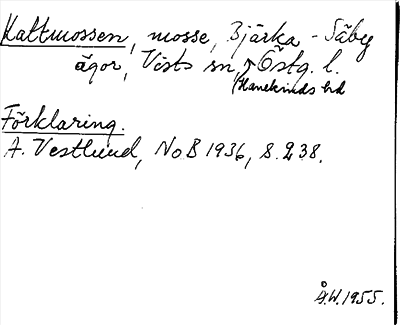 Kaltmossen, mosse, Bjärka-Säby
ägor, Vists sn, Östg. l.
(Hanekinds hd
Förklaring.
A. Vestlund, NoB 1936, s. 238.
Å.W. 1955.